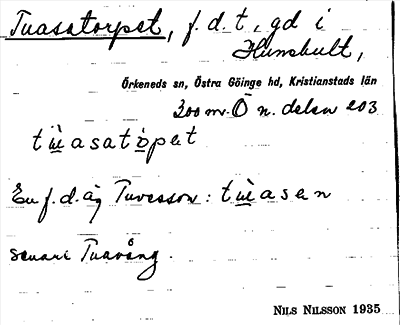 Tuasatorpet, f. d. t, gd i
Hunshult,
Örkeneds sn, Östra Göinge hd, Kristianstads län
300 m. Ö n. delen 203
tùasatòpet
En f. d. äg Tuvesson: tùasen
senare Tuavång.
NILS NILSSON 1935